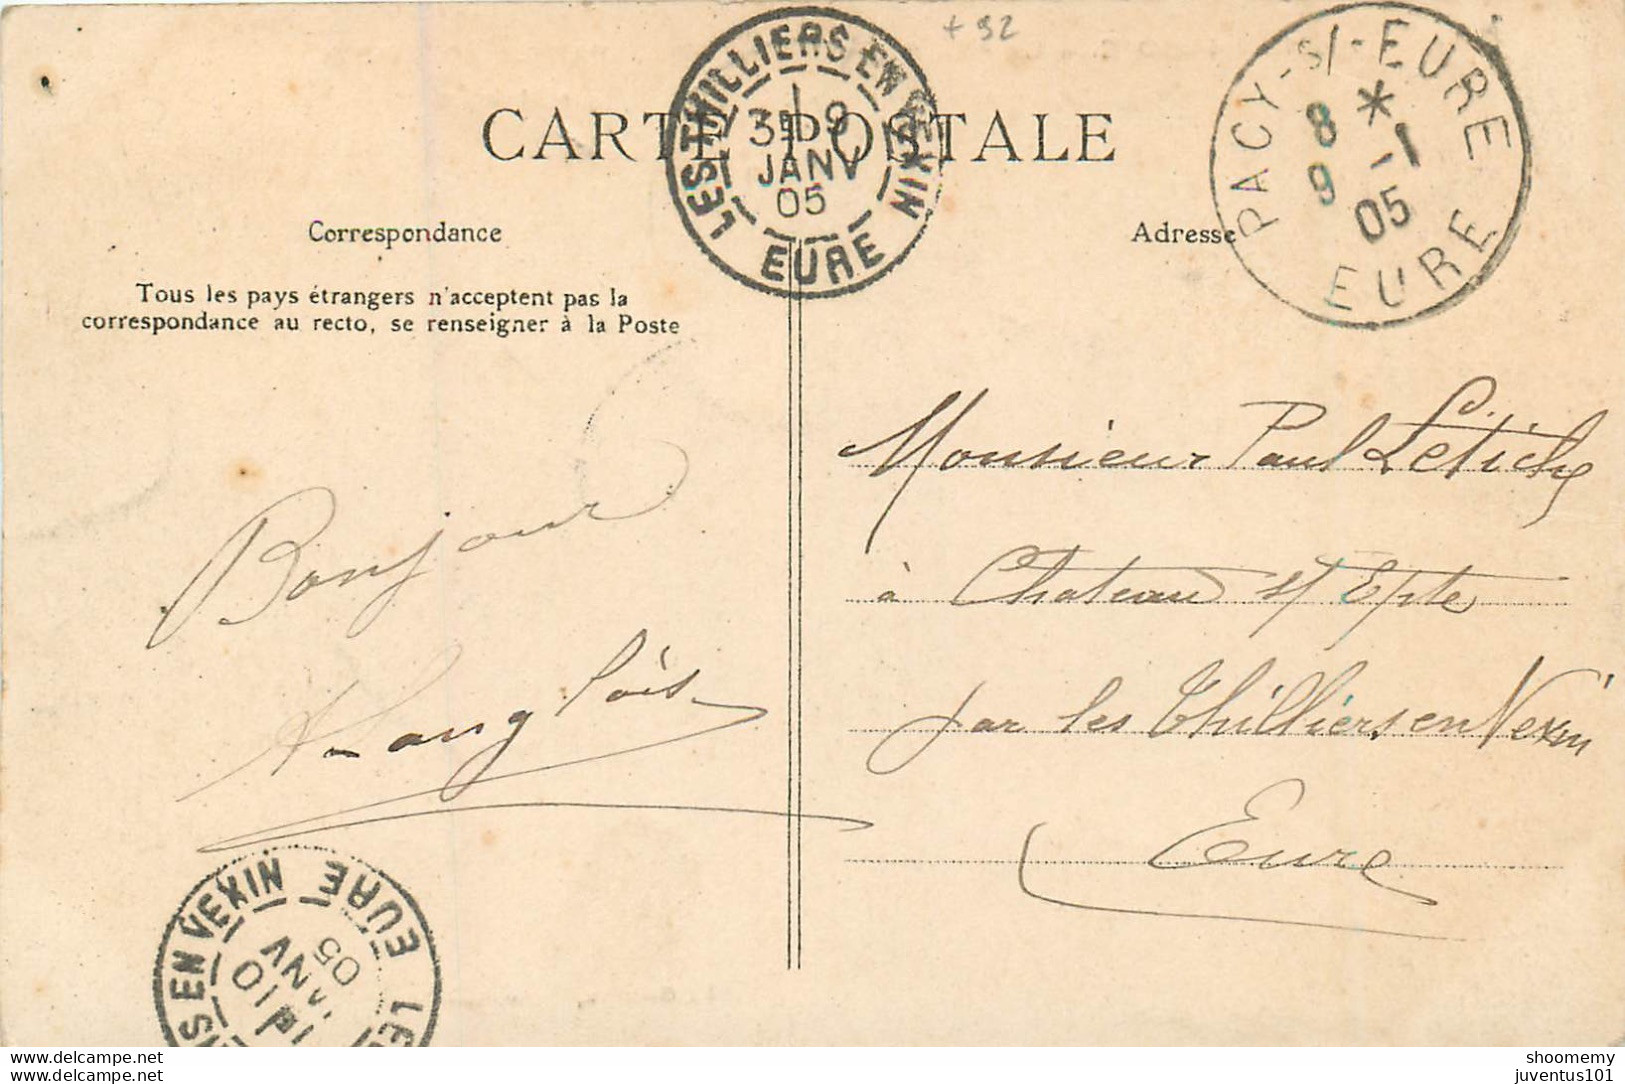 + 92
CARTE POSTALE
LES THILLIERS EN VEXIN
3E 9
JANV
05
EURE
PACY-S/-EURE
8 *
9 -1
05
EURE
Correspondance
Adresse
Tous les pays étrangers n'acceptent pas la
correspondance au recto, se renseigner à la Poste
Bonjour
Langlois
Monsieur Paul Letiche
à Chateau s/ Epte
par les Thilliers en Vexin
Eure
EN VEXIN EURE LE
10
JANV
05
www.delcampe.net
www.delcampe.net
shoomemy
juventus101